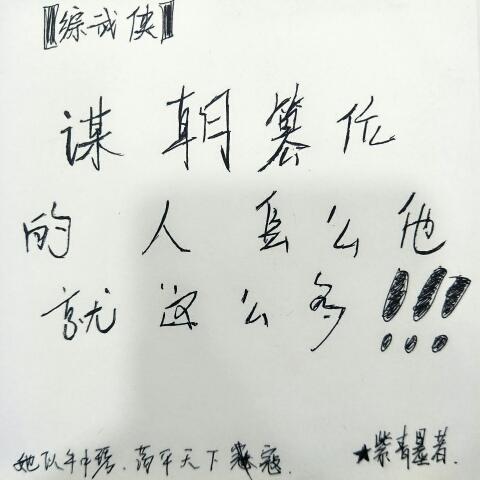 【综武侠】
谋朝篡位
的人怎么他
就这么多!!!
她以手中琴.荡平天下寇.
★紫青墨著.